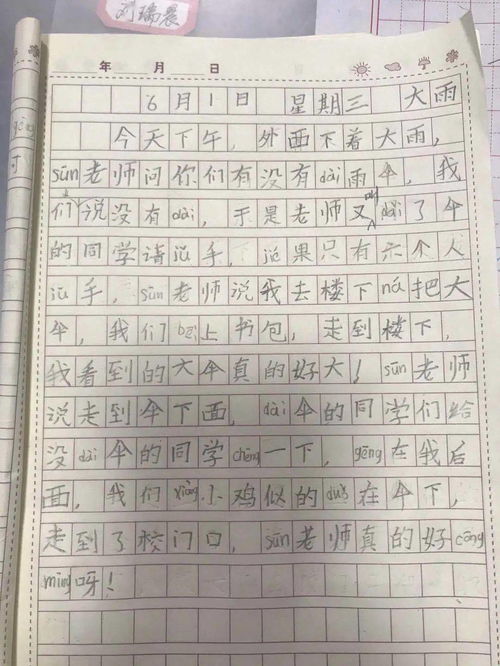 刘瑞晨
年 月 日
6月1日 星期三 大雨
今天下午，外面下着大雨，
sūn老师问你们有没有dài雨伞，我
们说没有dài，于是老师又叫dài了伞
的同学请jǔ手，jié果只有六个人
jǔ手，sūn老师说我去楼下ná把大
伞，我们bēi上书包，走到楼下，
我看到的大伞真的好大！sūn老师
说走到伞下面，dài伞的同学们给
没dài伞的同学chēng一下，gēng在我后
面，我们xiàng小鸡似的duǒ在伞下，
走到了校门口，sūn老师真的好cōng
míng呀！